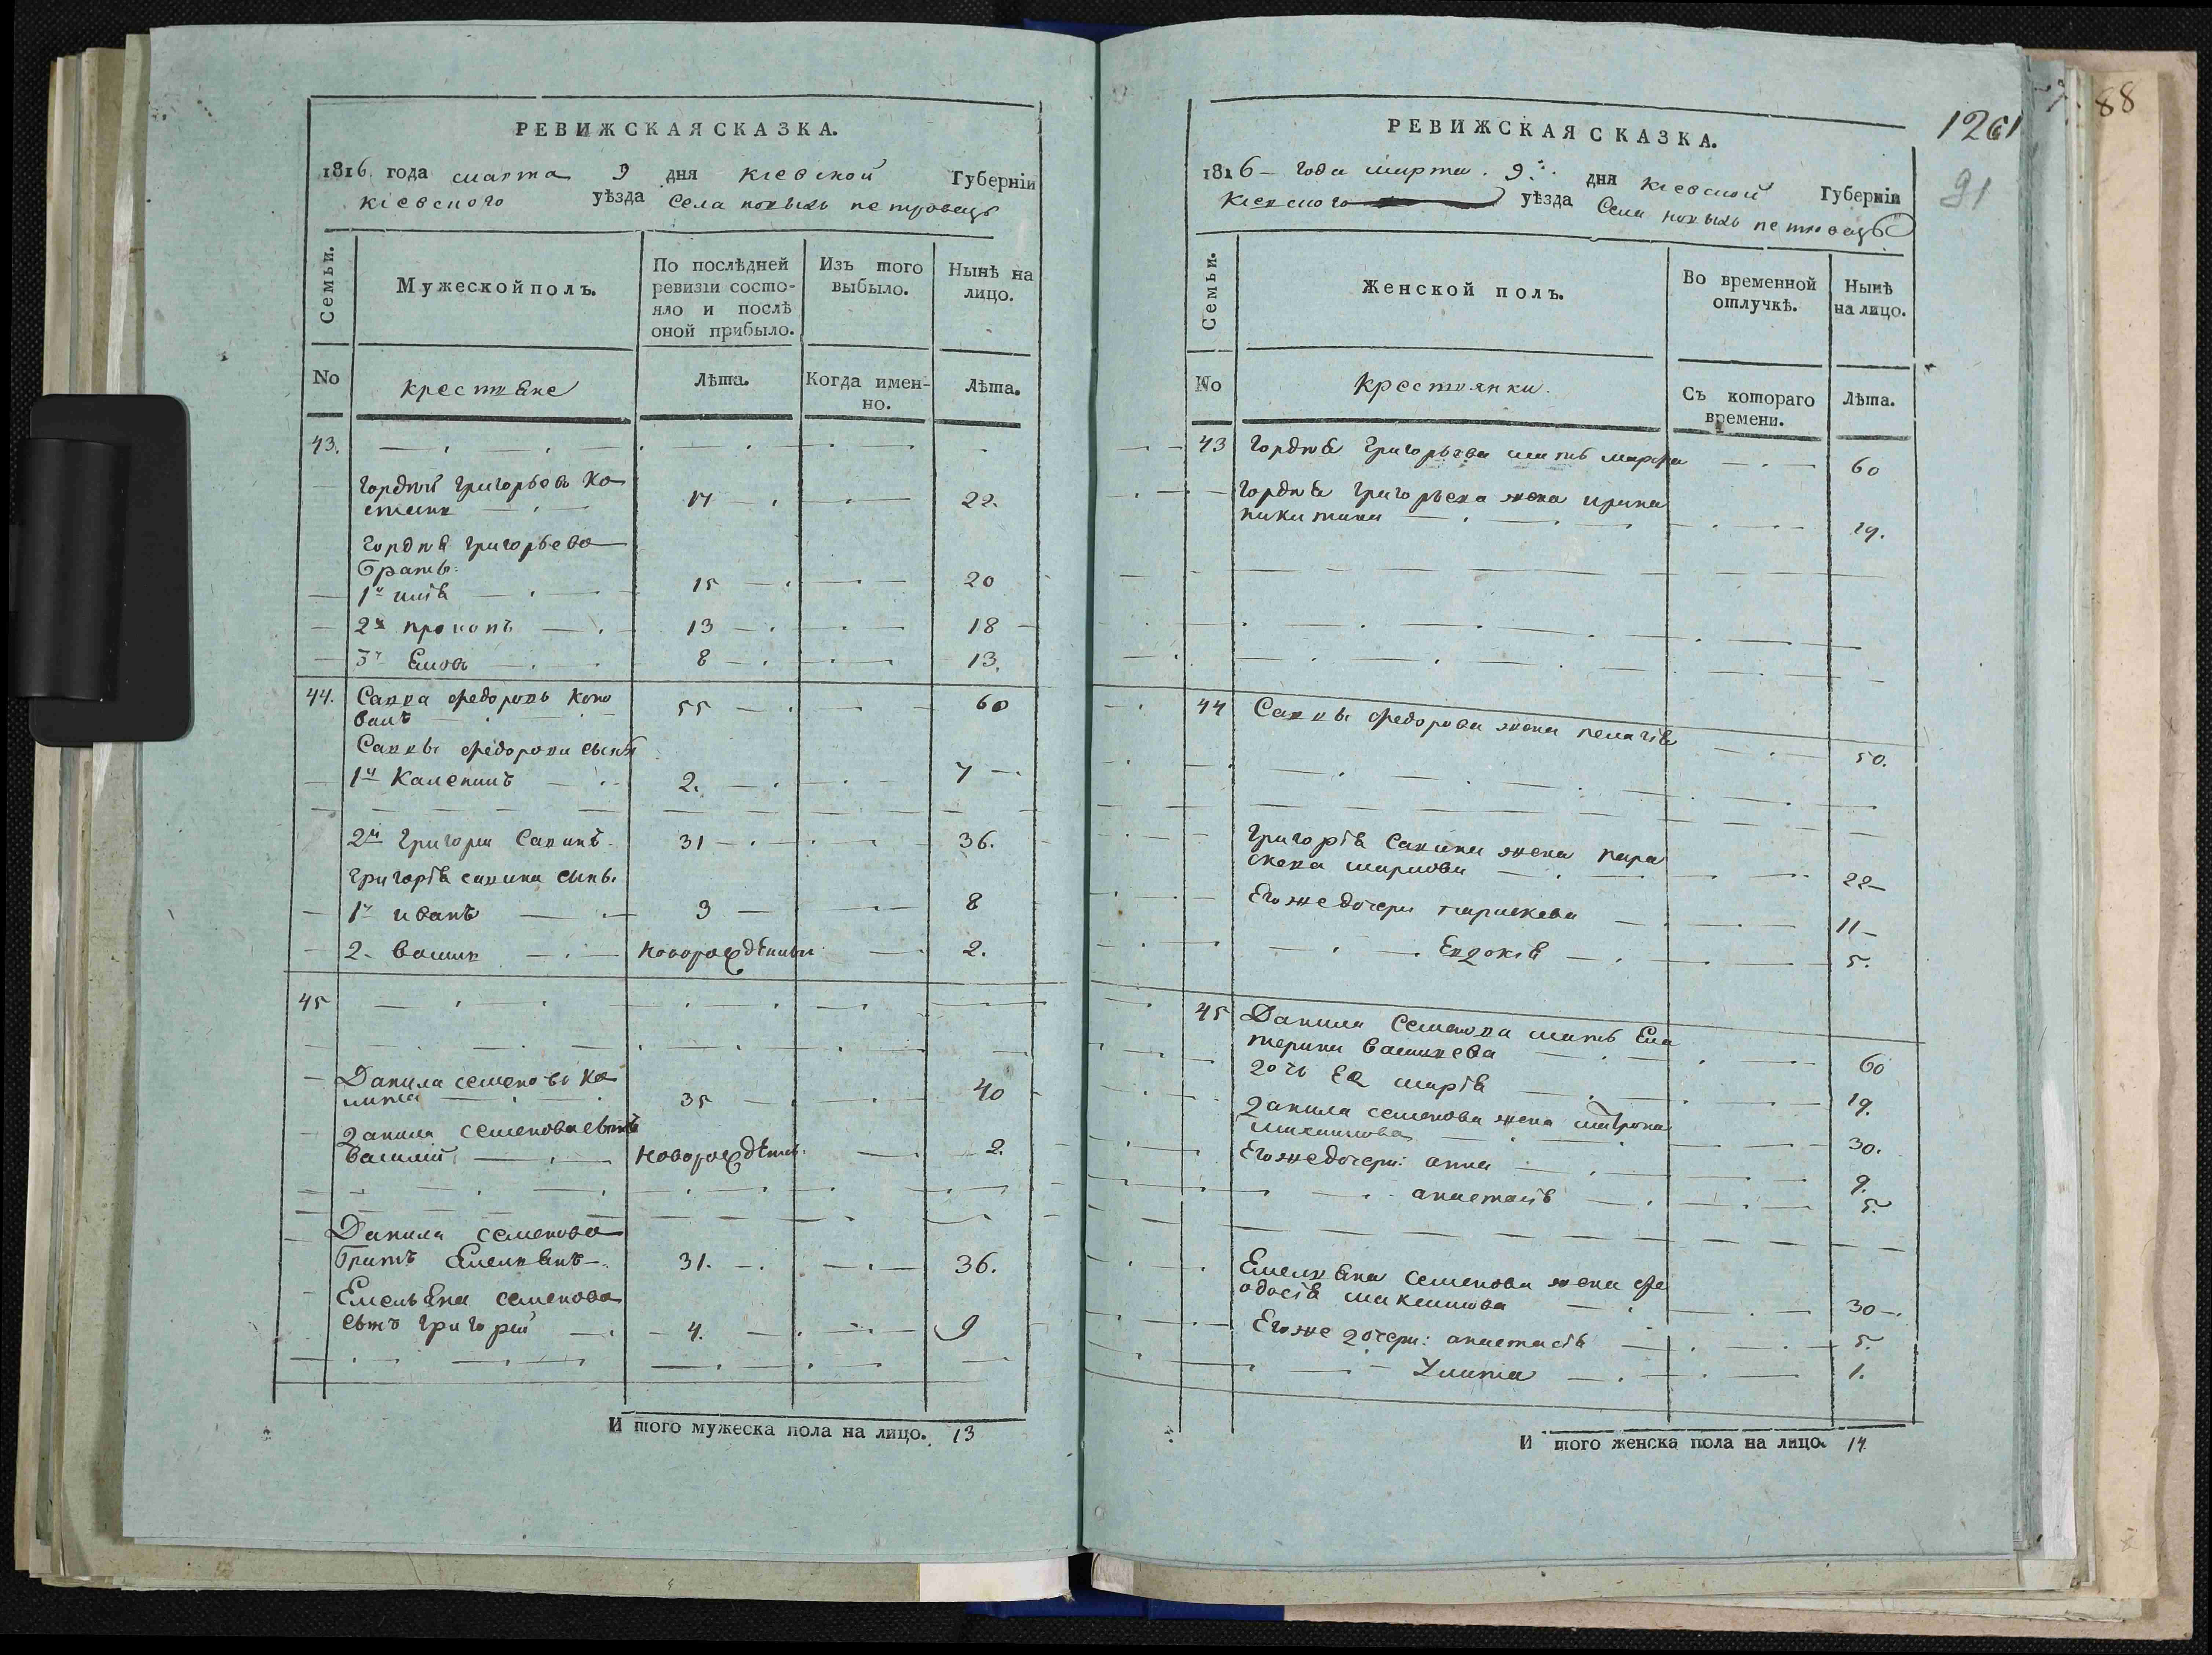 РЕВИЖСКАЯ СКАЗКА.
1816 года марта 9 дня кіевской Губерніи
кіевского уѣзда Села новыхъ петровецъ
Семьи.
Мужеской полъ.
По послѣдней ревизіи состояло и послѣ оной прибыло.
Изъ того выбыло.
Нынѣ на лицо.
No
крестяне
Лѣта.
Когда именно.
Лѣта.
43.
Гордѣй григорьевъ ко
17 22.
Гордѣя григорьева
братъ:
1й илія 15 20
2й прокопъ 13 18
3й 8 13.
44. Савва федоровъ коно
валъ 55 60
Саввы федорова сынъ
1й Каленикъ 2. 7
2й григори Савинъ 31 36.
григорія савина сынъ.
1й иванъ 3 8
2. новорождѣнны 2.
45
Данила семеновъ ка
35 40
данила семенова сынъ
василій новорождѣны. 2.
Данила семенова
братъ Емелянъ 31. 36.
Емельяна семенова
сынъ григорій 4. 9
И того мужеска пола на лицо. 13
1261
88
91
РЕВИЖСКАЯ СКАЗКА.
1816 года марта 9. дня кіевской Губерніи
кіевского уѣзда Села новыхъ петровецъ
Семьи.
Женской полъ.
Во временной отлучкѣ.
Нынѣ на лицо.
No
крестянки.
Съ котораго времени.
Лѣта.
43 Гордѣя григорьева мать марфа 60
Гордѣя григорьева жена ирина
никитина 19.
44 Саввы федорова жена пелагія 50.
григорія Савина жена пара
скева 22
Егоже дочери параскева 11
Евдокія 5.
45 Данила Семенова мать Ека
терина 60
дочь Ея марія 19.
данила семенова жена матрона
30.
Егоже дочери: анна 9.
анастасія 5.
Емеляна семенова жена фе
одосія максимова 30
Егоже дочери: анастасія 5.
Улита 1.
И того женска пола на лицо. 14